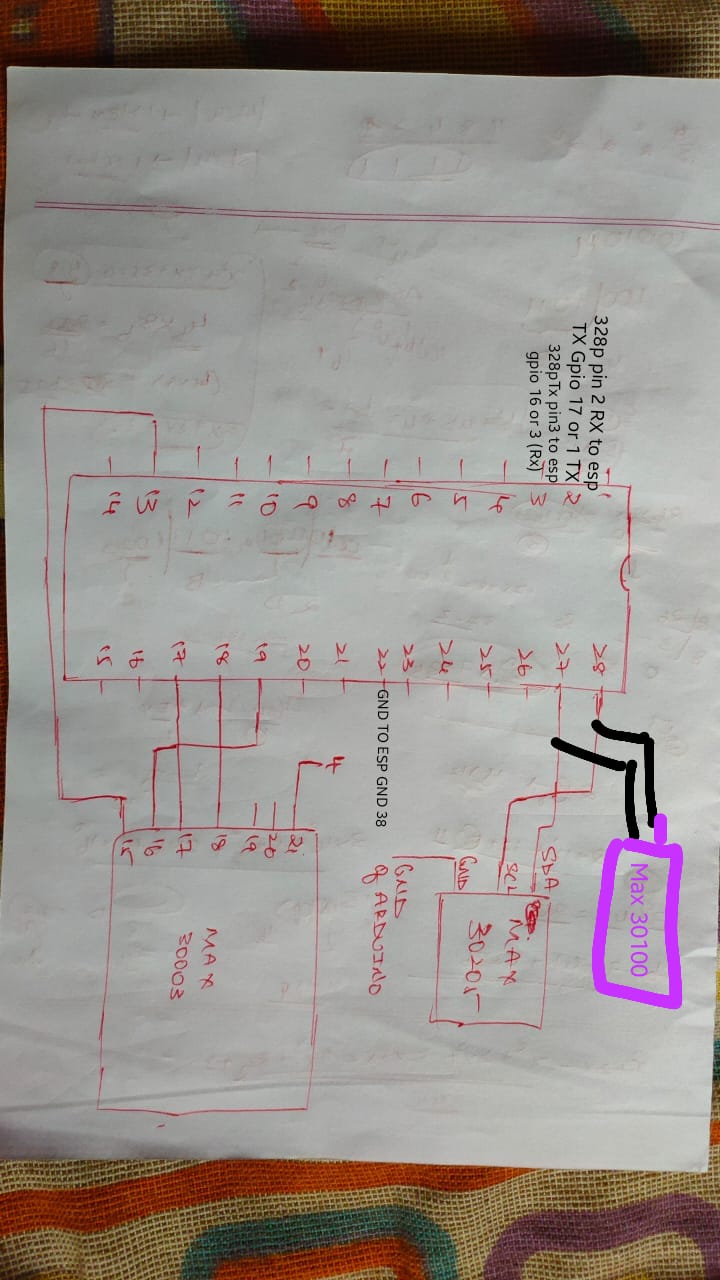 Max 30100
328p pin 2 RX to esp
TX Gpio 17 or 1 TX
328pTx pin3 to esp
gpio 16 or 3 (Rx)
1
2
3
4
5
6
7
8
9
10
11
12
13
14
28
27
26
25
24
23
22
21
20
19
18
17
16
15
GND TO ESP GND 38
SDA
SCL
GND
MAX
30205
GND
of ARDUINO
4
21
20
19
18
17
16
15
MAX
30003